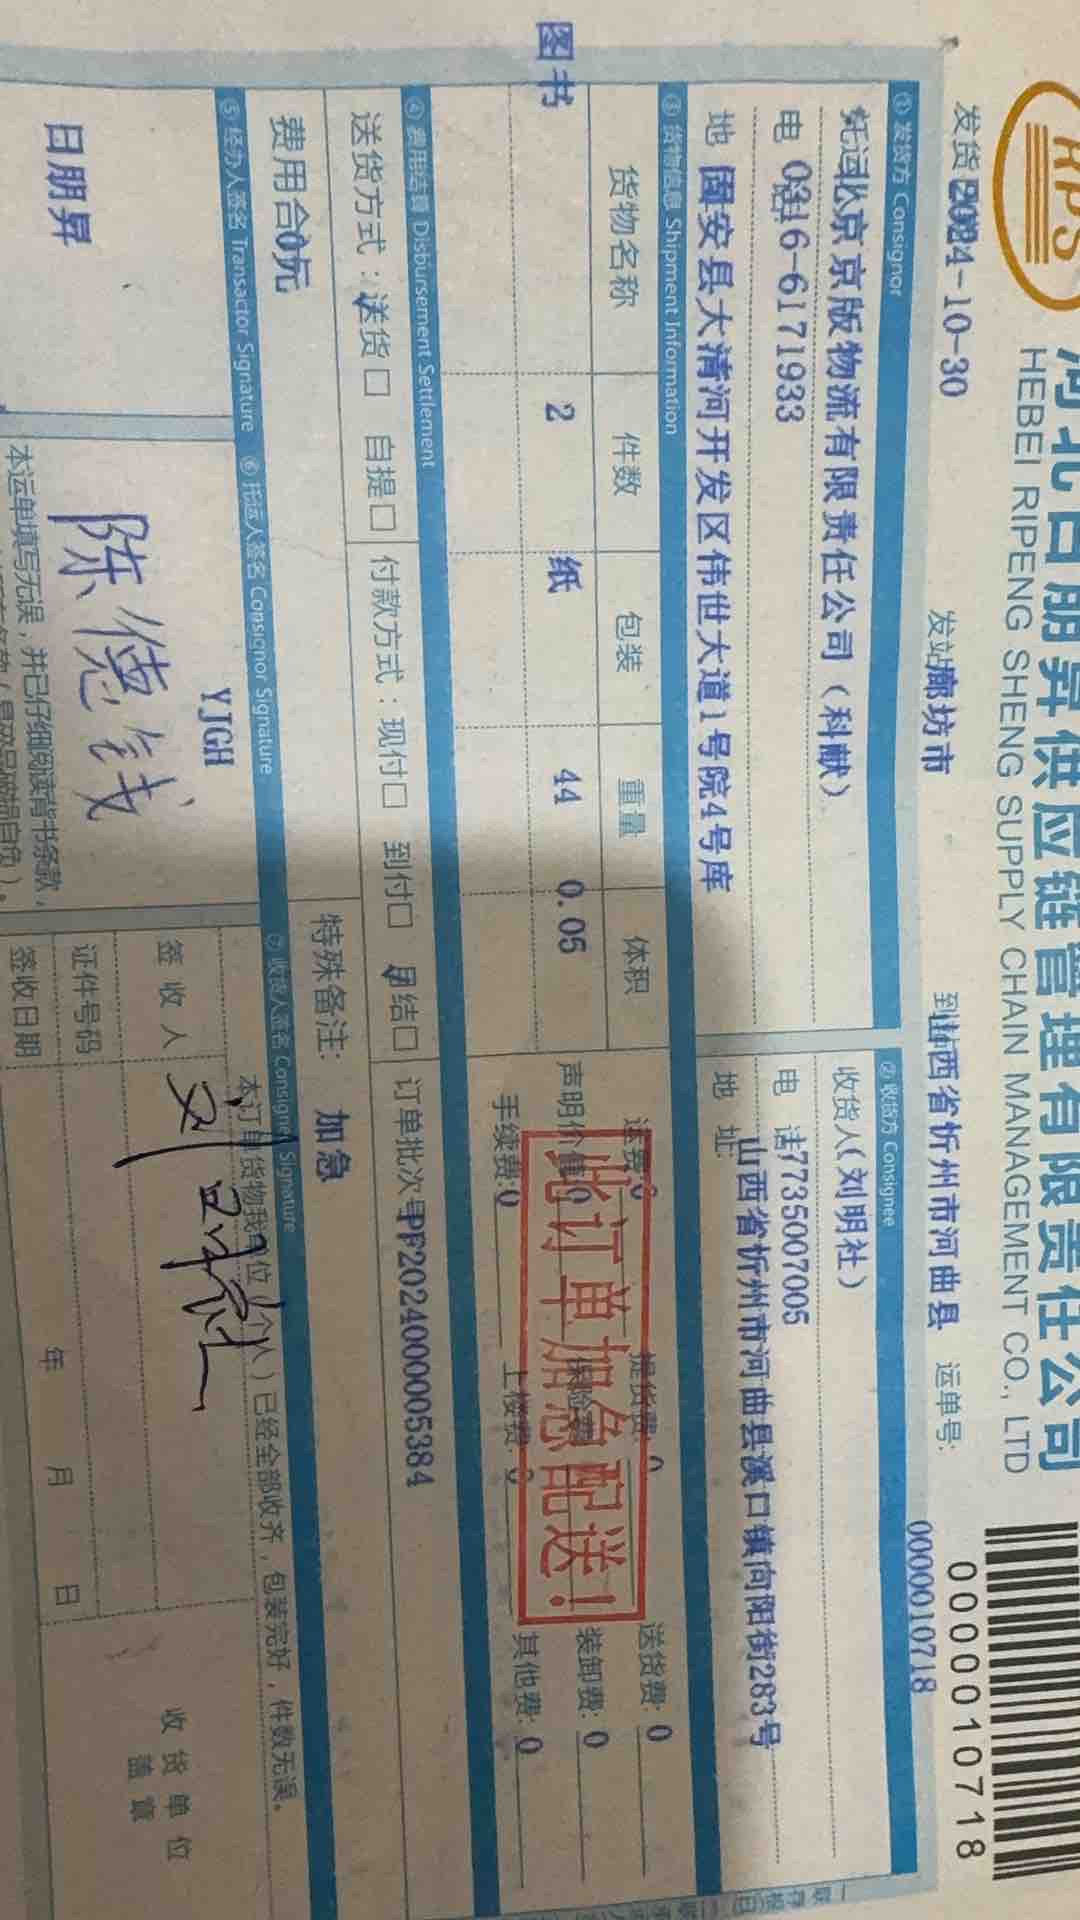 RPS
河北日朋昇供应链管理有限责任公司
HEBEI RIPENG SHENG SUPPLY CHAIN MANAGEMENT CO., LTD
0000010718
发货 2024-10-30
发站 廊坊市
到站 山西省忻州市河曲县
运单号:
0000010718
① 发货方 Consignor
② 收货方 Consignee
托运 北京京版物流有限责任公司（科献）
收货人（刘明社）
电 0316-6171933
电 话 17735007005
地 固安县大清河开发区伟世大道1号院4号库
地 址: 山西省忻州市河曲县溪口镇向阳街283号
③ 货物信息 Shipment Information
货物名称 件数 包装 重量 体积
图书 2 纸 44 0.05
运费 0 提货费 0 送货费: 0
声明价值 0 保险费 装卸费: 0
手续费 0 上楼费 0 其他费: 0
此订单加急配送!
④ 费用结算 Disbursement Settlement
送货方式：送货口 自提口 付款方式：现付口 到付口 月结口 订单批次号 PF20240000005384
费用合 0元
特殊备注: 加急
⑤ 经办人签名 Transactor Signature ⑥ 托运人签名 Consignor Signature
⑦ 收货人签名 Consignee Signature
日朋昇
YJGH
本订单货物我单位（个人）已经全部收齐，包装完好，件数无误。
签 收 人 刘明社
证件号码
签收日期 年 月 日
收货单位
盖章
本运单填写无误，并已仔细阅读背书条款，